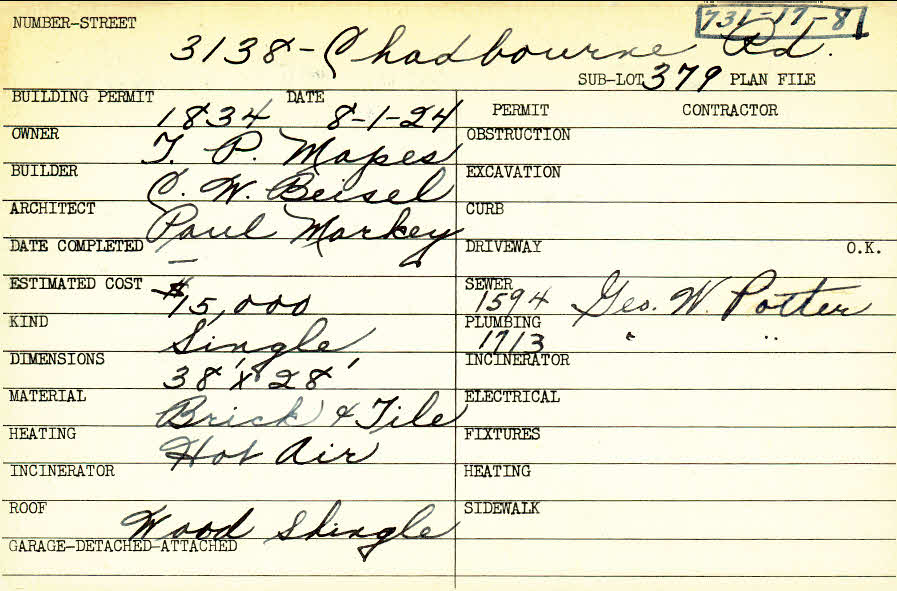 NUMBER-STREET 731-17-81
3138 - Chadbourne Rd.
SUB-LOT 379 PLAN FILE
BUILDING PERMIT 1834 DATE 8-1-24 PERMIT CONTRACTOR
OWNER T. P. Mapes OBSTRUCTION
BUILDER C. W. Beisel EXCAVATION
ARCHITECT Paul Markey CURB
DATE COMPLETED — DRIVEWAY O.K.
ESTIMATED COST $15,000 SEWER 1594 Geo. W. Potter
KIND Single PLUMBING 1713 " "
DIMENSIONS 38' x 28' INCINERATOR
MATERIAL Brick & Tile ELECTRICAL
HEATING Hot Air FIXTURES
INCINERATOR HEATING
ROOF Wood Shingle SIDEWALK
GARAGE-DETACHED-ATTACHED